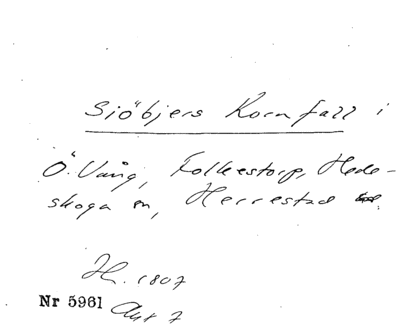 Sjöbjers Kornfall i
Ö. Vång, Folkestorp, Hede-
skoga m, Herrestad
H. 1807
Nr 5961 Akt 7